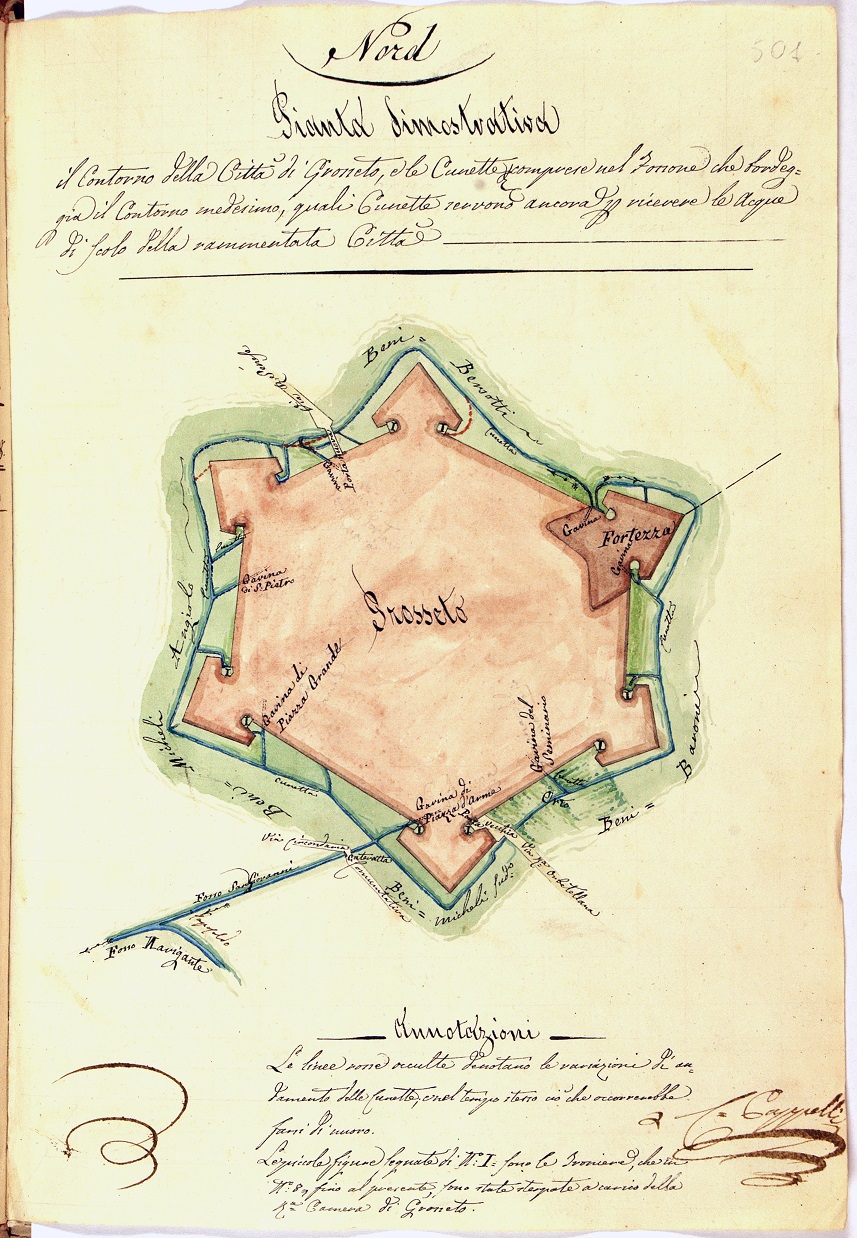 Nord
501
Pianta Dimostrativa
il Contorno della Città di Grosseto, e le Cunette comprese nel Fossone che bordeg=
gia il Contorno medesimo, quali Cunette servono ancora p ricevere le Acque
di scolo della rammentata Città
Beni =
Bersotti
Cunetta
Porta Nuova
Gavina
Fortezza
Gavina
Cunetta
Gavina
di S. Pietro
Cunetta
Angiolo
Grosseto
Gavina di
Piazza Grande
Micheli
Beni =
Cunetta
Gavina del
Seminario
Baroni
Beni =
Orto
Gavina di
Piazza d'Arme
Porta Vecchia
Via p Orbetellana
Via Circondaria
Cateratta
Comunitativa
Beni =
Micheli Sud.º
Fosso San Giovanni
Fosso Navigante
Annotazioni
Le linee rosse occulte denotano le variazioni di an=
damento delle Cunette, e nel tempo stesso ciò che occorrerebbe
farsi di nuovo.
Le piccole figure segnate di N.º I= sono le Troniere, che in
N.º 89 fino al presente, sono state sterpate a carico della
R.ª Camera di Grosseto.
Cappelli